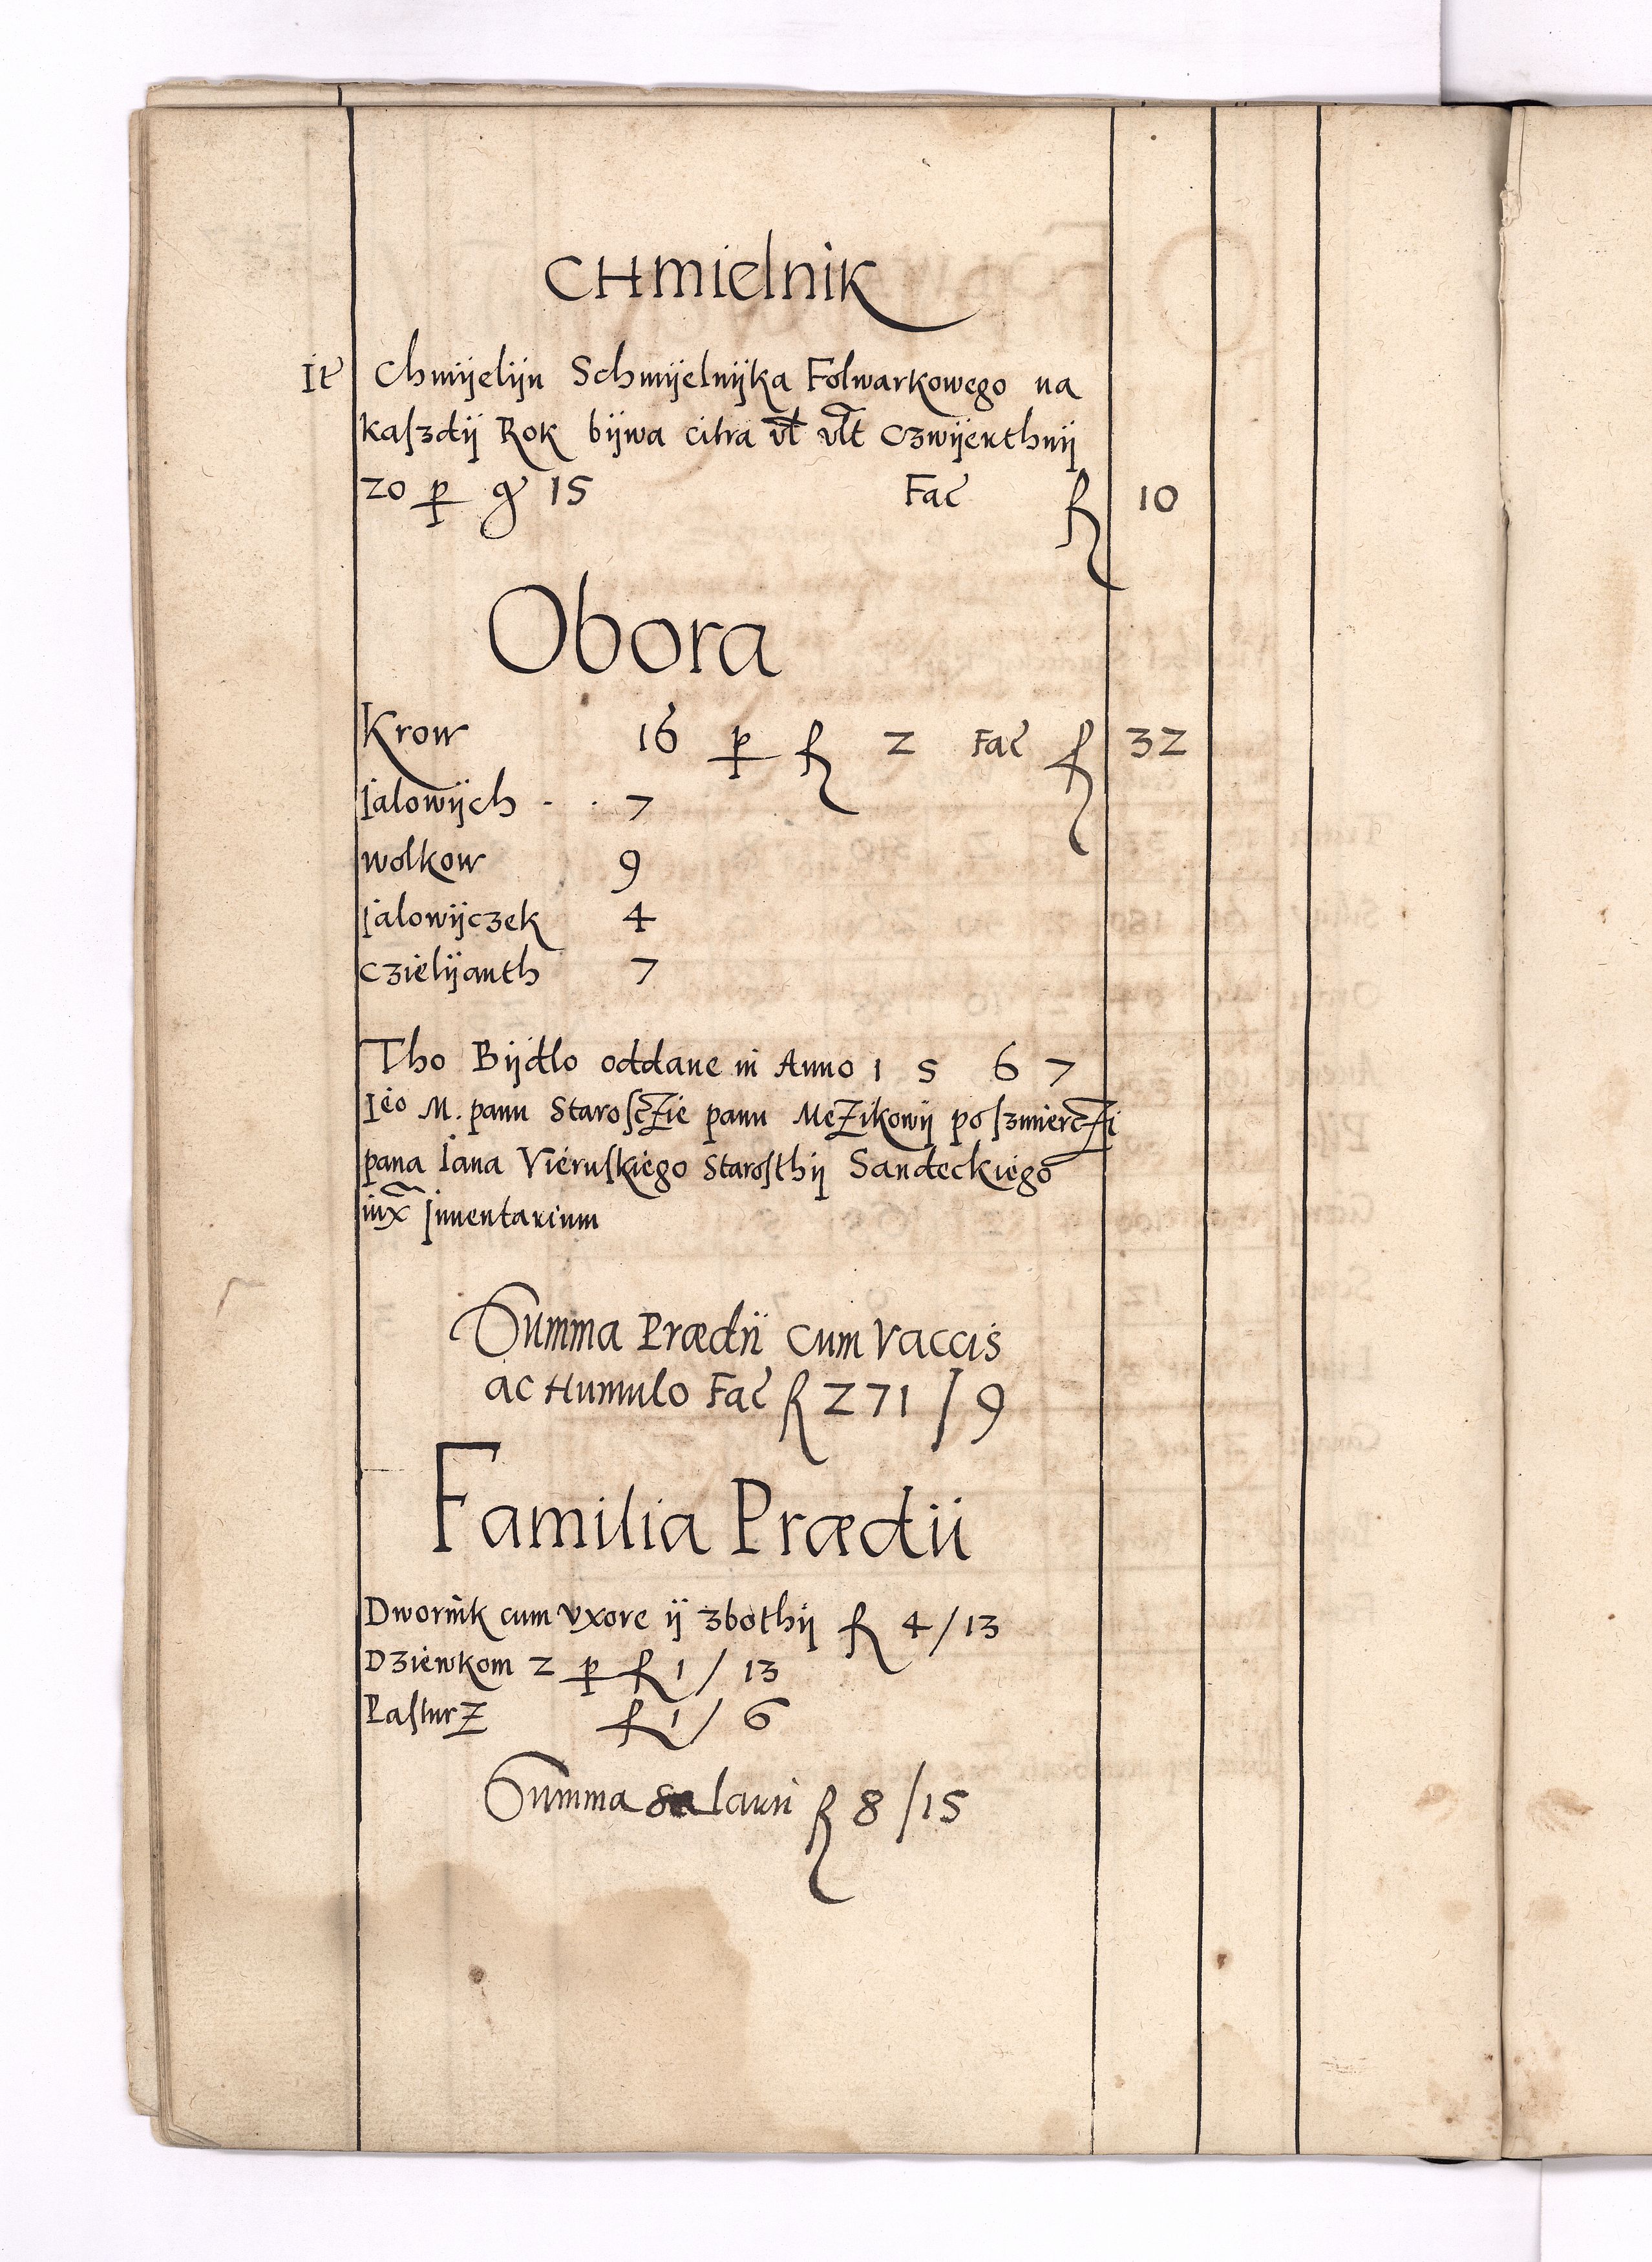 CHmielnik
It͛ Chmÿelÿn Schmÿelnÿka Folwarkowego na
kaſzdÿ Rok bÿwa citra vl vlt czwÿerthnÿ
20 p gr 15 Fac fl 10
Obora
Krow 16 p fl 2 Fac fl 32
Jalowÿch 7
wolkow 9
jalowÿczek 4
czielÿanth 7
Tho Bÿdlo oddane in Anno 1 5 6 7
Ieo M. panu Staroſcżie panu Meżikowÿ po ſzmiercżi
pana Iana Vieruſkiego Staroſthÿ Sandeckiego
iux Inuentarium
Summa Prædii cum vaccis
ac Humulo Fac fl 271 / 9
Familia Prædii
Dwornik cum vxore ÿ zbothÿ fl 4/13
Dziewkom 2 p fl 1 / 13
Paſturz fl 1 / 6
Summa salarii fl 8 /15